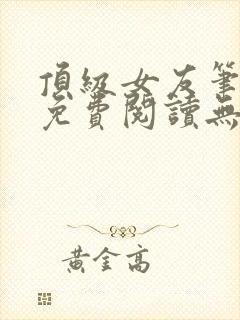 頂級女友筆
免費閱讀無
黃金高